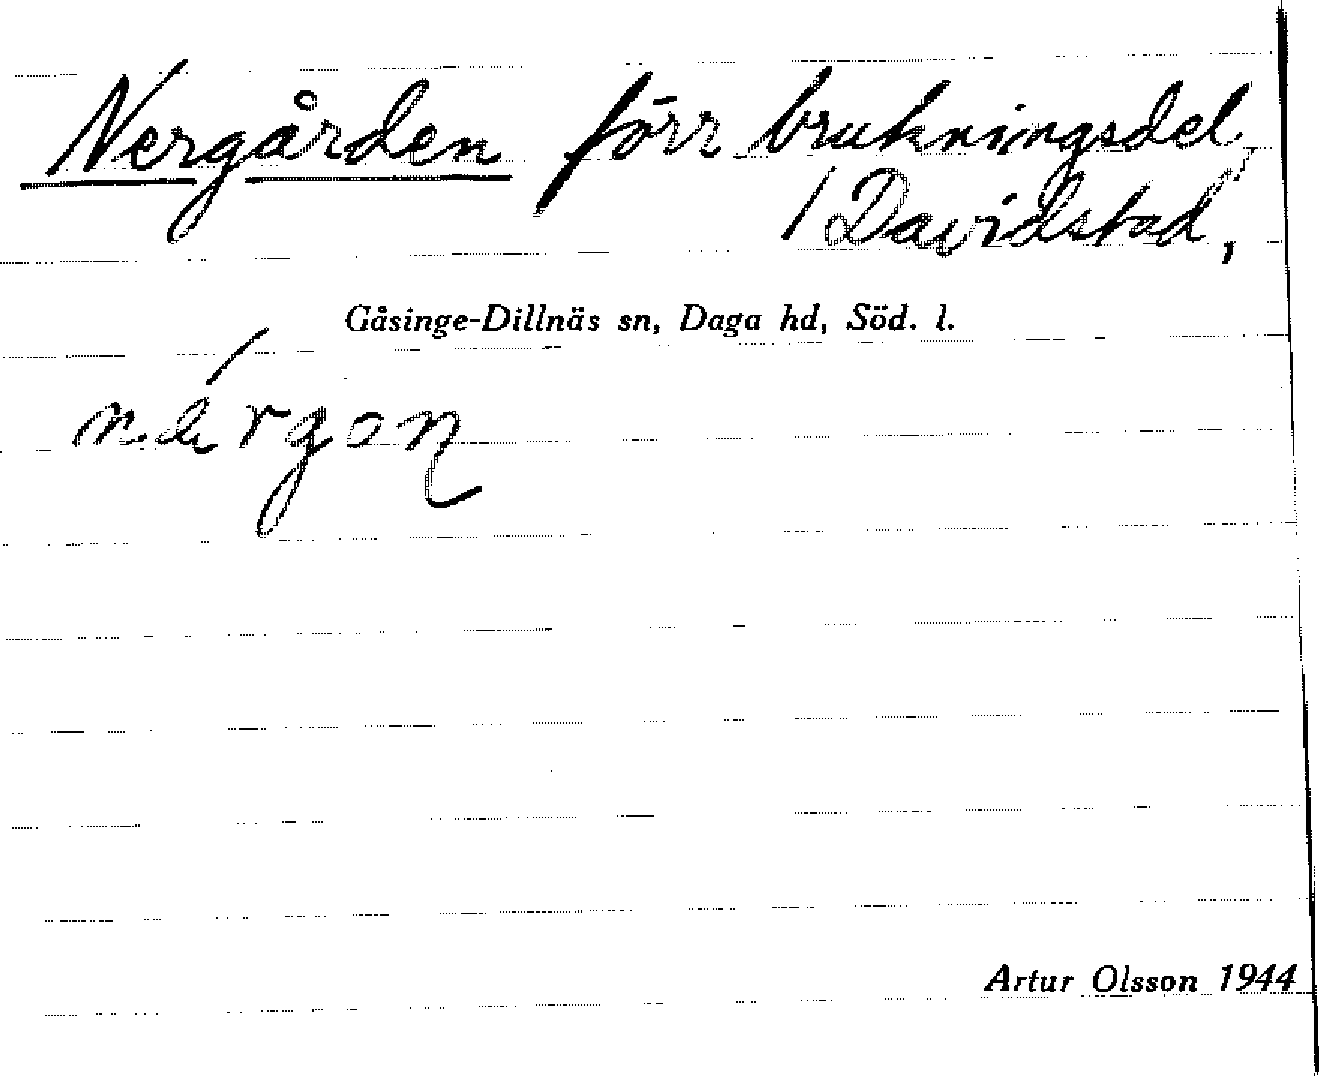 Nergården förr brukningsdel,
/ Davidstad,
Gåsinge-Dillnäs sn, Daga hd, Söd. l.
Artur Olsson 1944